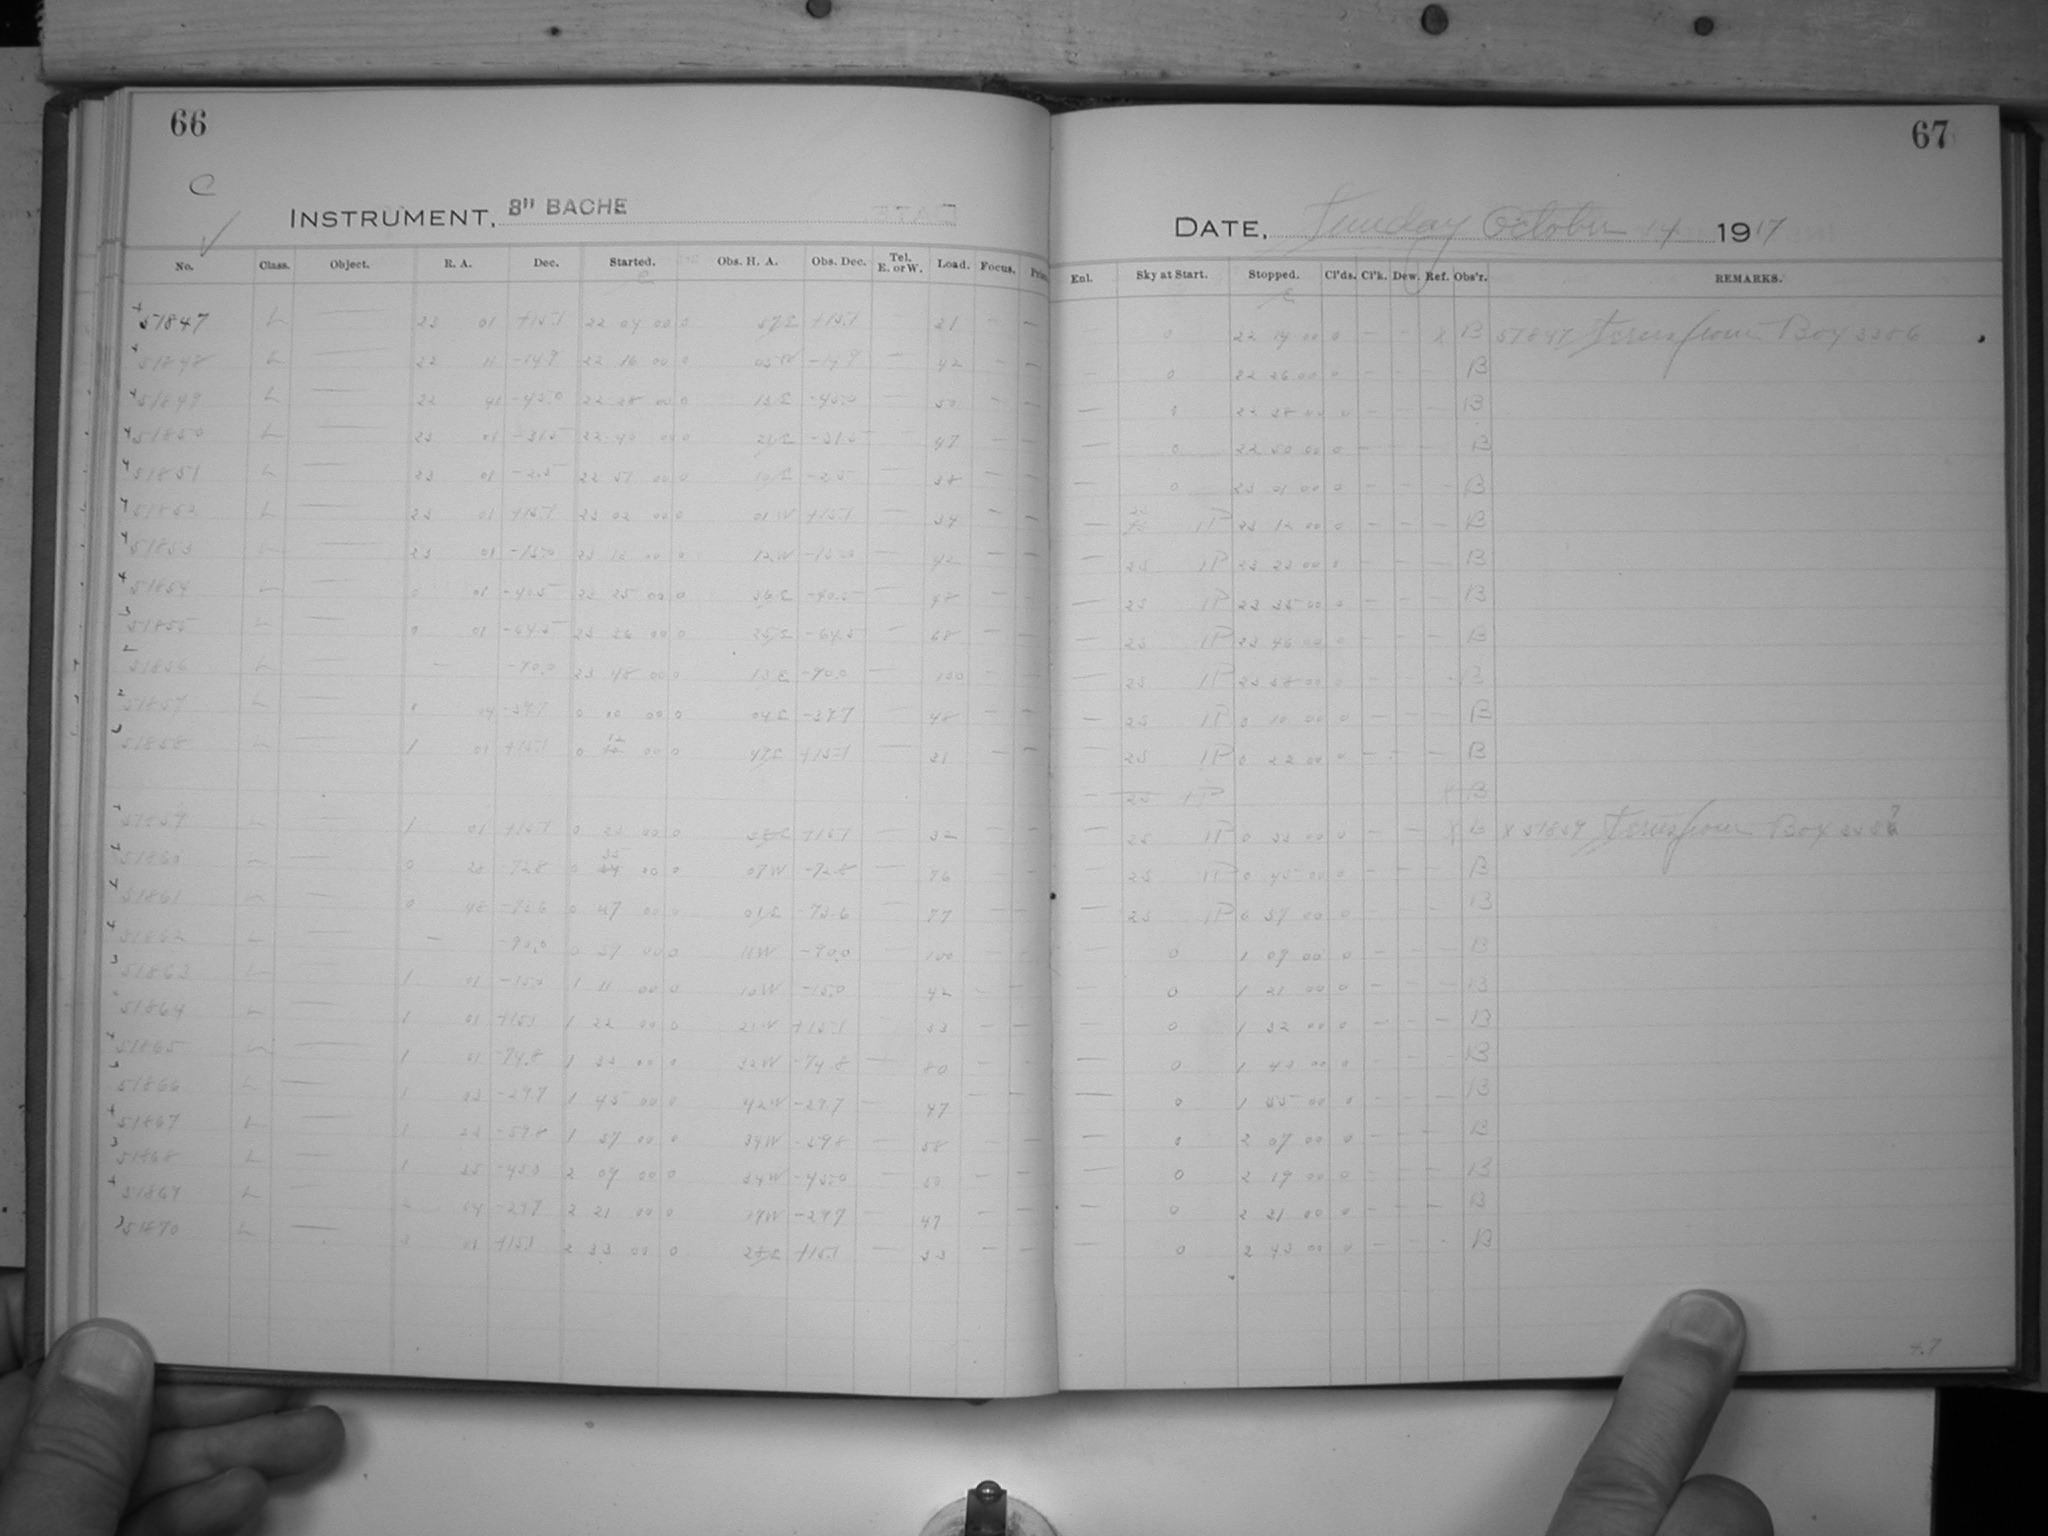 66
67
C
INSTRUMENT, 8" BACHE
DATE, Sunday October 14 1917
No. Class. Object. R. A. Dec. Started. Obs. H. A. Obs. Dec. Tel. E. or W. Load. Focus.
Enl. Sky at Start. Stopped. Cl'ds. Cl'k. Dew. Ref. Obs'r. REMARKS.
51847 L — 23 01 +15.1 22 04 00 0 57E +15.1 31 — —
51848 L — 22 11 -14.9 22 16 00 0 05W -14.9 — 42 — —
51849 L — 22 41 -45.0 22 28 00 0 13E -45.0 — 50 — —
51850 L — 23 01 -31.5 22 40 00 0 21E -31.5 — 47 — —
51851 L — 23 01 -2.5 22 51 00 0 10E -2.5 — 38 — —
51852 L — 23 01 +15.1 23 02 00 0 01W +15.1 — 34 — —
51853 L — 23 01 -15.0 23 12 00 0 12W -15.0 — 42 — —
51854 L — 0 01 -40.5 23 25 00 0 36E -40.5 — 48 — —
51855 L — 0 01 -64.5 23 36 00 0 25E -64.5 — 68 — —
51856 L — — -90.0 23 48 00 0 13E -90.0 — 100 — —
51857 L — 0 04 -39.7 0 00 00 0 04E -39.7 — 48 — —
51858 L — 1 01 +15.1 0 12 00 0 49E +15.1 — 31 — —
51859 L — 1 01 +15.1 0 23 00 0 +15.1 — 32 — —
51860 — 0 28 -72.8 0 35 00 0 07W -72.8 — 76 — —
51861 L — 0 48 -73.6 0 47 00 0 01E -73.6 — 77 — —
51862 L — — -90.0 0 59 00 0 11W -90.0 — 100 — —
51863 L — 1 01 -15.0 1 11 00 0 10W -15.0 42 — —
51864 L — 1 01 +15.1 1 22 00 0 21W +15.1 33 — —
51865 L — 1 01 -74.8 1 33 00 0 32W -74.8 — 80 — —
51866 L — 1 03 -29.7 1 45 00 0 42W -29.7 47 — —
51867 L — 1 23 -59.8 1 57 00 0 34W -59.8 — 58 — —
51868 L — 1 35 -45.0 2 09 00 0 34W -45.0 — 50 — —
51869 L — 2 04 -29.7 2 21 00 0 17W -29.7 — 47 — —
51870 L — 3 01 +15.1 2 33 00 0 28E +15.1 — 33 — —
— 0 22 14 00 0 — — X B 51847 Box 3386
— 0 22 26 00 0 — — — B
— 0 22 38 00 0 — — — B
— 0 22 50 00 0 — — — B
— 0 23 01 00 0 — — — B
— 25 1P 23 12 00 0 — — — B
— 25 1P 23 22 00 0 — — — B
— 25 1P 23 35 00 0 — — — B
— 25 1P 23 46 00 0 — — — B
— 25 1P 23 58 00 0 — — — B
— 25 1P 0 10 00 0 — — — B
— 25 1P 0 22 00 0 — — — B
— 25 1P X B
25 1P 0 33 00 0 — — X B X 51859 Box
— 25 1P 0 45 00 0 — — — B
— 25 1P 0 57 00 0 — — — B
— 0 1 09 00 0 — — — B
— 0 1 21 00 0 — — — B
— 0 1 32 00 0 — — — B
— 0 1 43 00 0 — — — B
— 0 1 55 00 0 — — — B
— 0 2 07 00 0 — — — B
— 0 2 19 00 0 — — — B
— 0 2 31 00 0 — — — B
— 0 2 43 00 0 — — — B